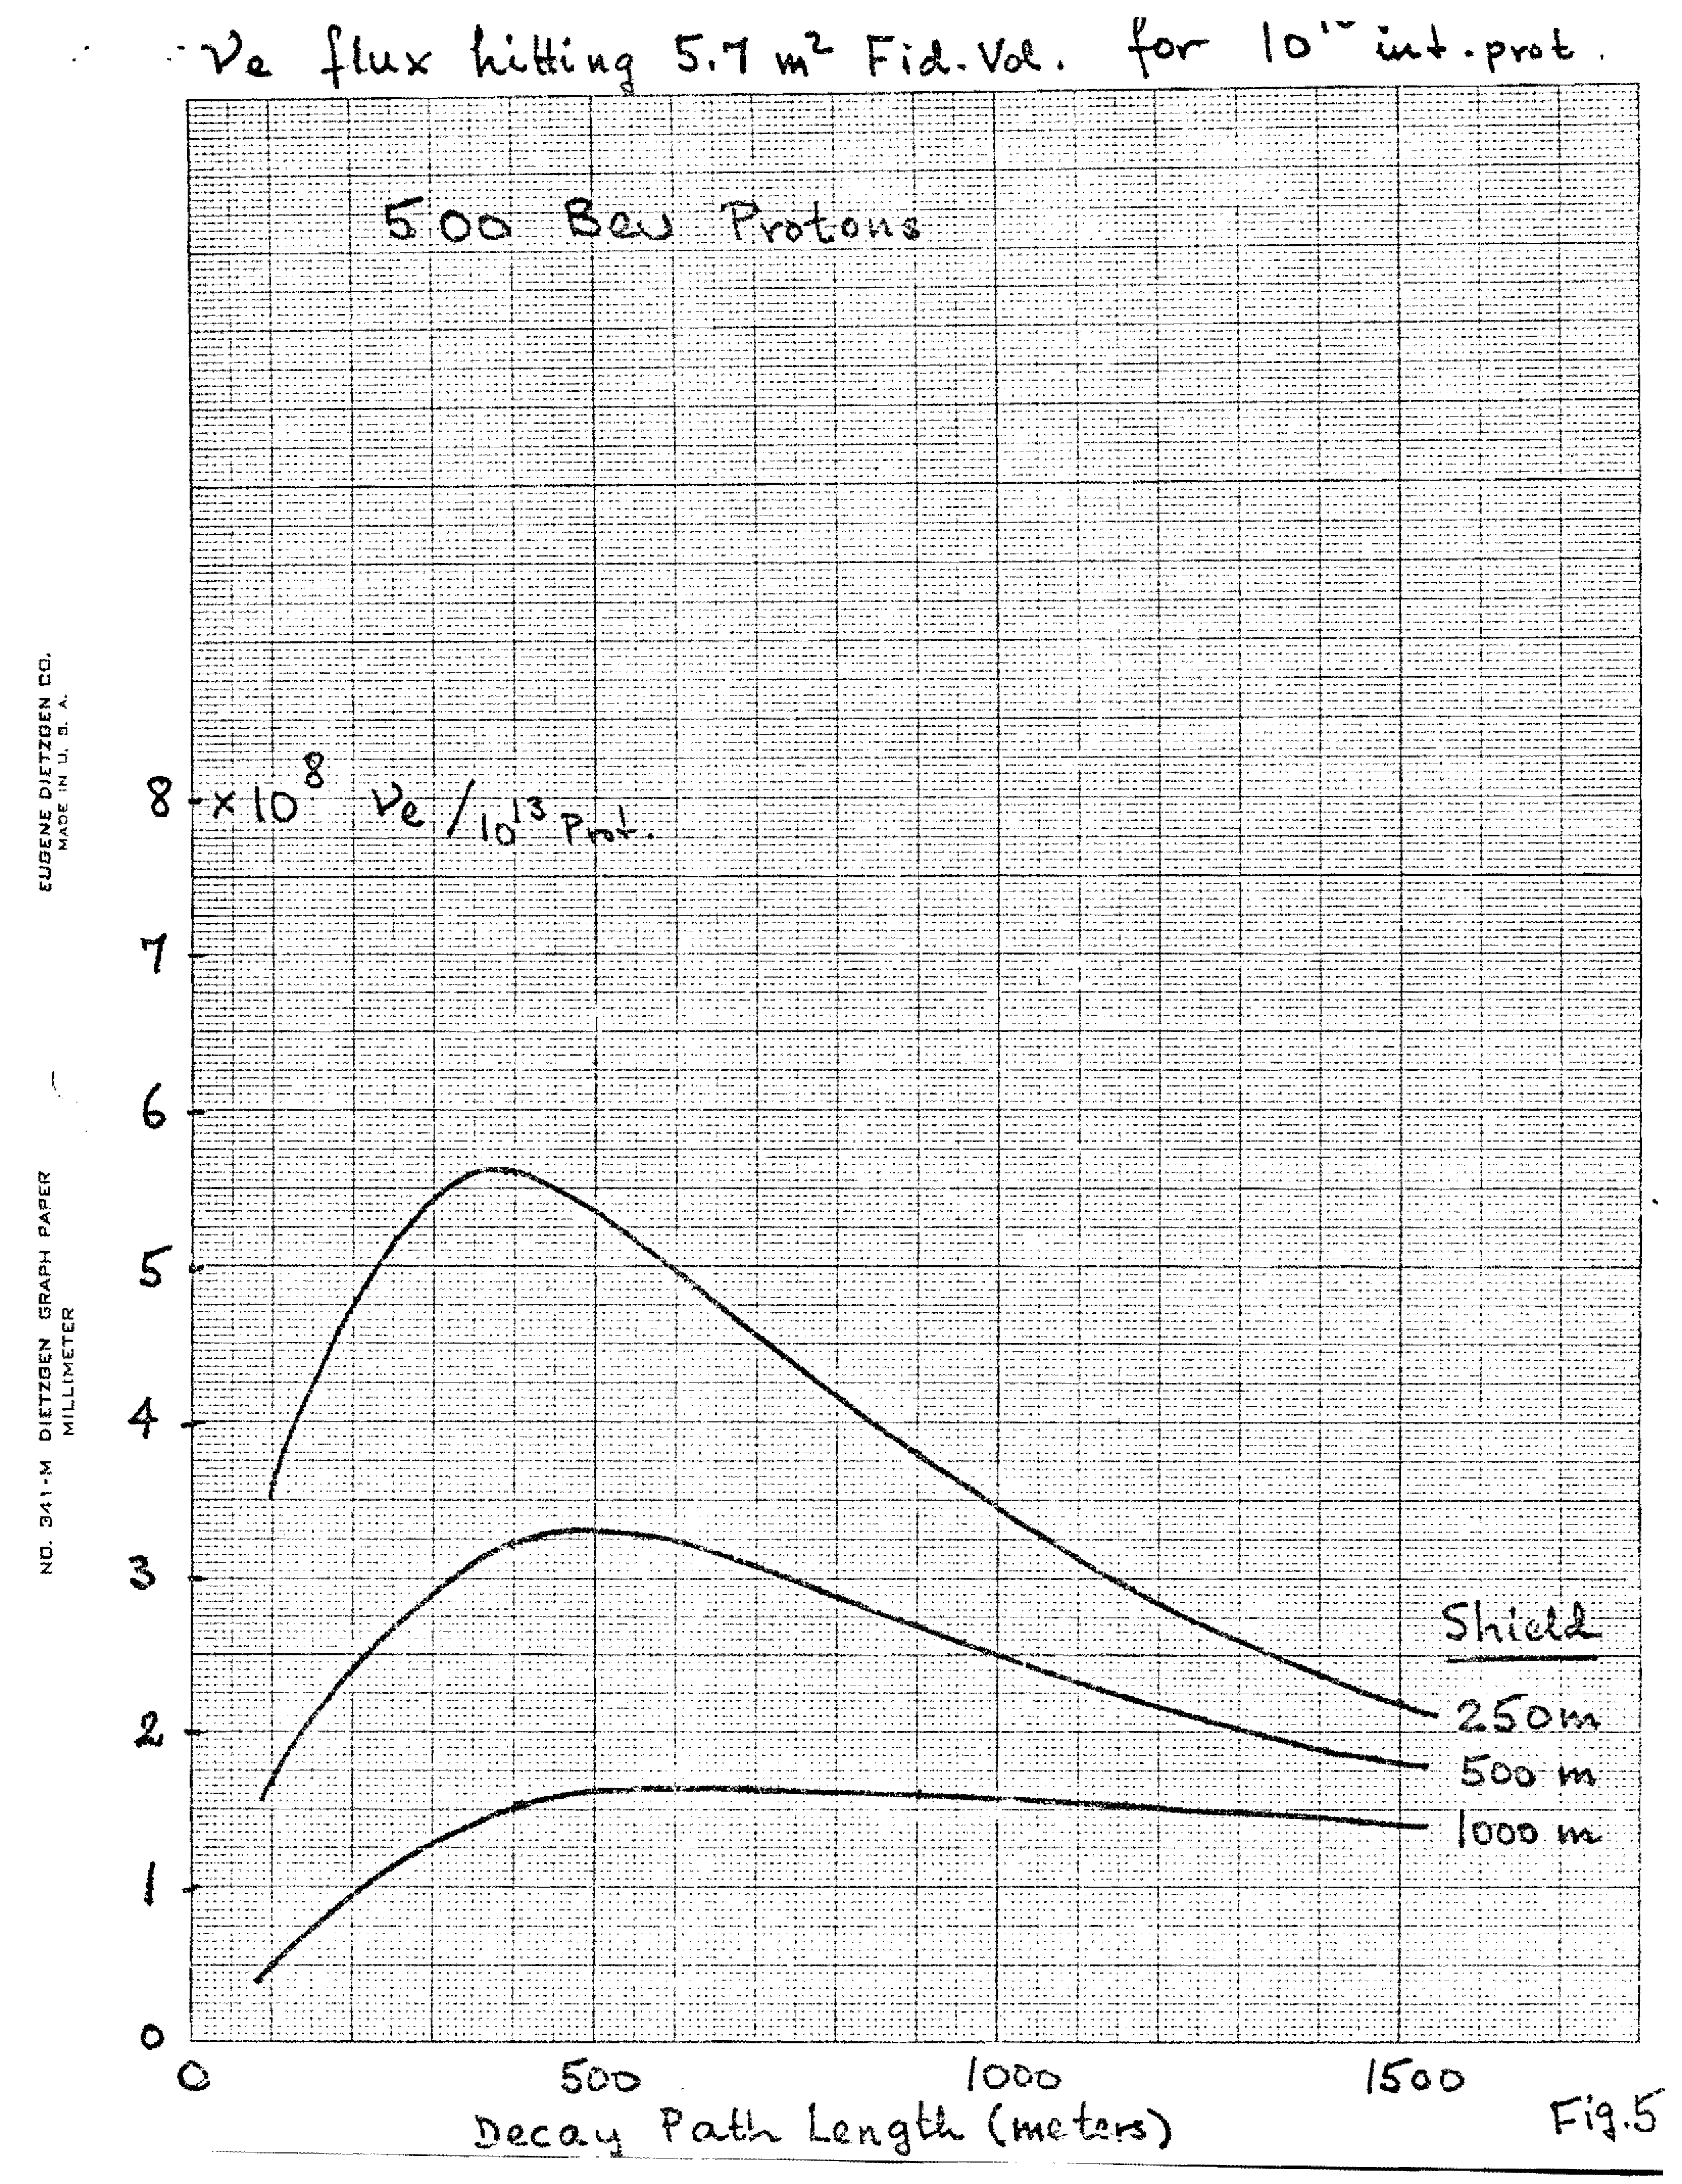 νe flux hitting 5.7 m² Fid. Vol. for int. prot.
500 Bev Protons
8 × 10⁸ νe / 10¹³ Prot.
7
6
5
4
3
2
1
0
Shield
250 m
500 m
1000 m
0 500 1000 1500
Decay Path Length (meters)
Fig. 5
EUGENE DIETZGEN CO.
MADE IN U. S. A.
NO. 341-M DIETZGEN GRAPH PAPER
MILLIMETER